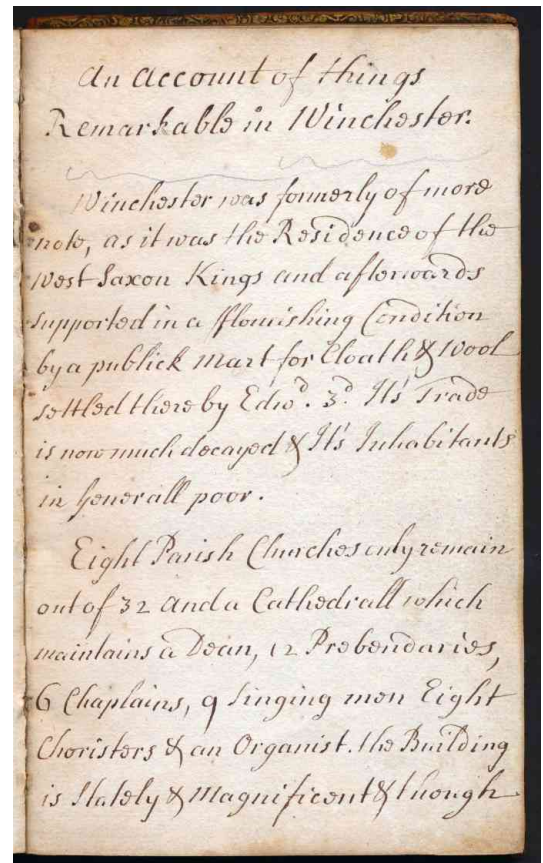 An Account of things
Remarkable in Winchester.
Winchester was formerly of more
note, as it was the Residence of the
West Saxon Kings and afterwards
supported in a fflourishing Condition
by a publick Mart for Cloath & Wool
settled there by Edwd. 3d. It's Trade
is now much decayed & It's Inhabitants
in Generall poor.
Eight Parish Churches only remain
out of 32 and a Cathedrall which
maintains a Dean, 12 Prebendaries,
6 Chaplains, 9 Singing men Eight
Choristers & an Organist. the Building
is Stately & Magnificent & though